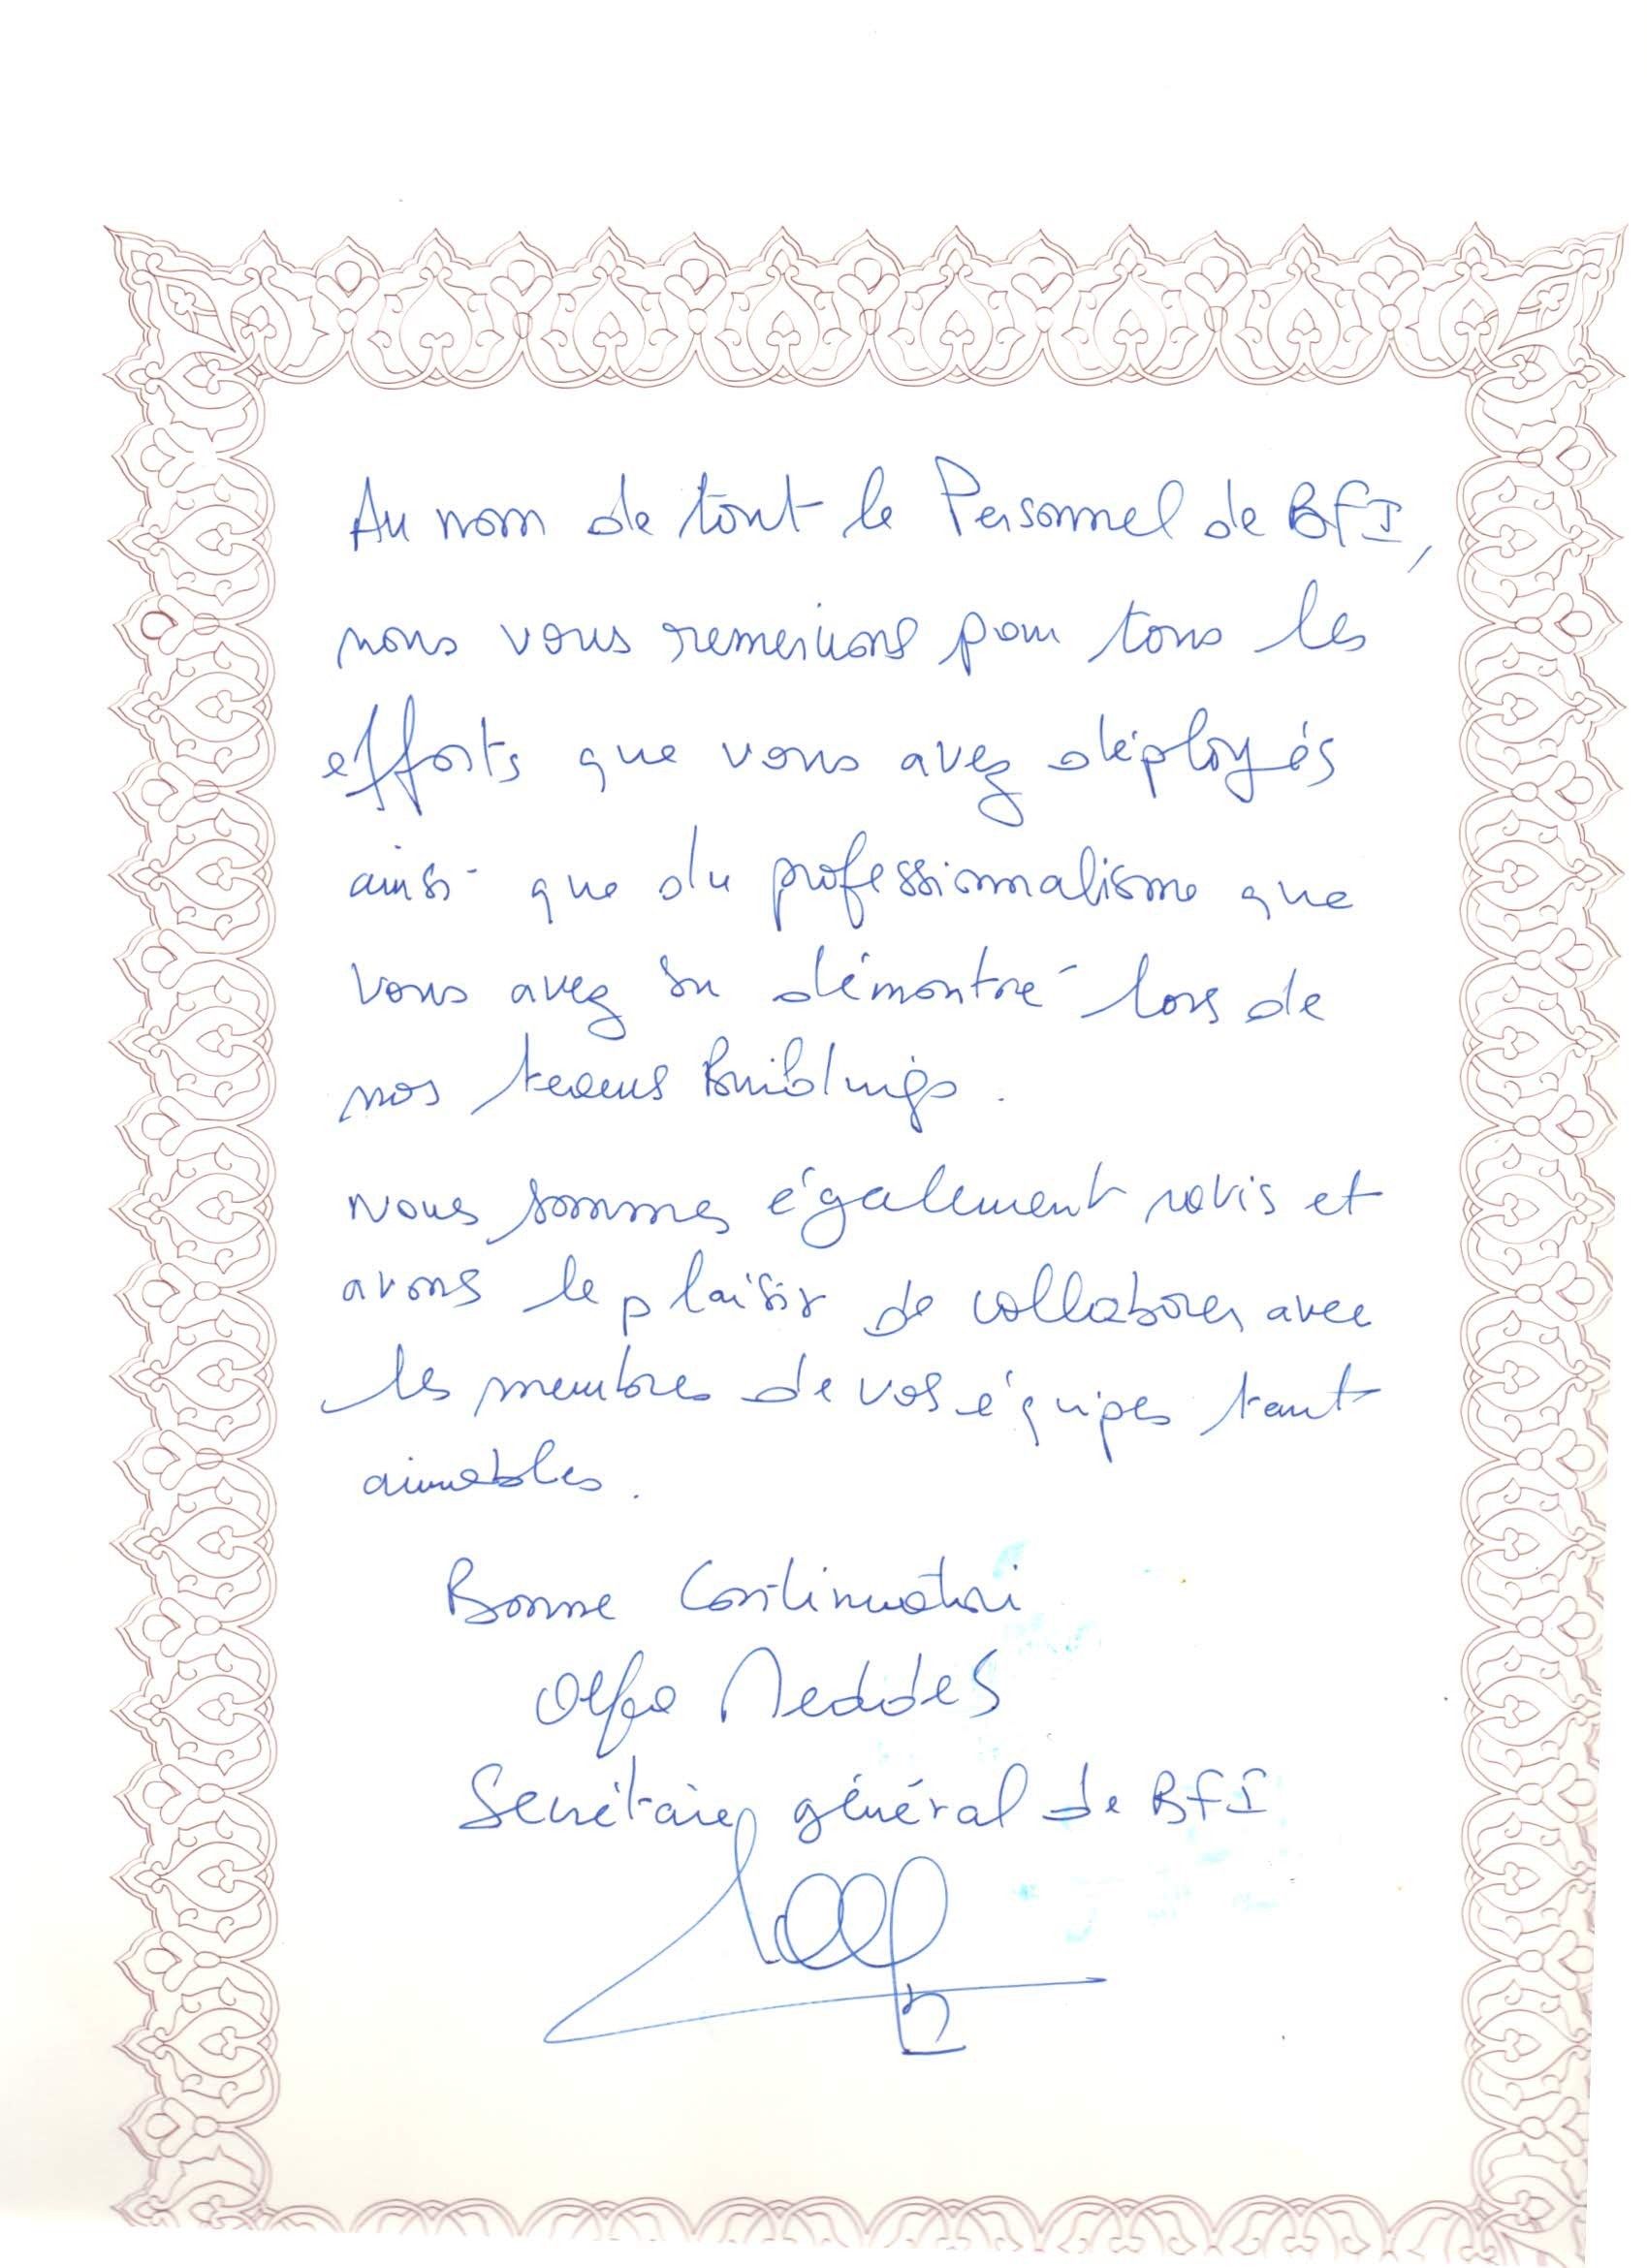 Au nom de tout le Personnel de BFI,
nous vous remercions pour tous les
efforts que vous avez déployés
ainsi que du professionnalisme que
vous avez su démontré lors de
nos teams Buildings.
Nous sommes également ravis et
avons le plaisir de collaborer avec
les membres de vos équipes tant
aimables.
Bonne Continuation
Olfa Neddes
Secrétaire général de BFI